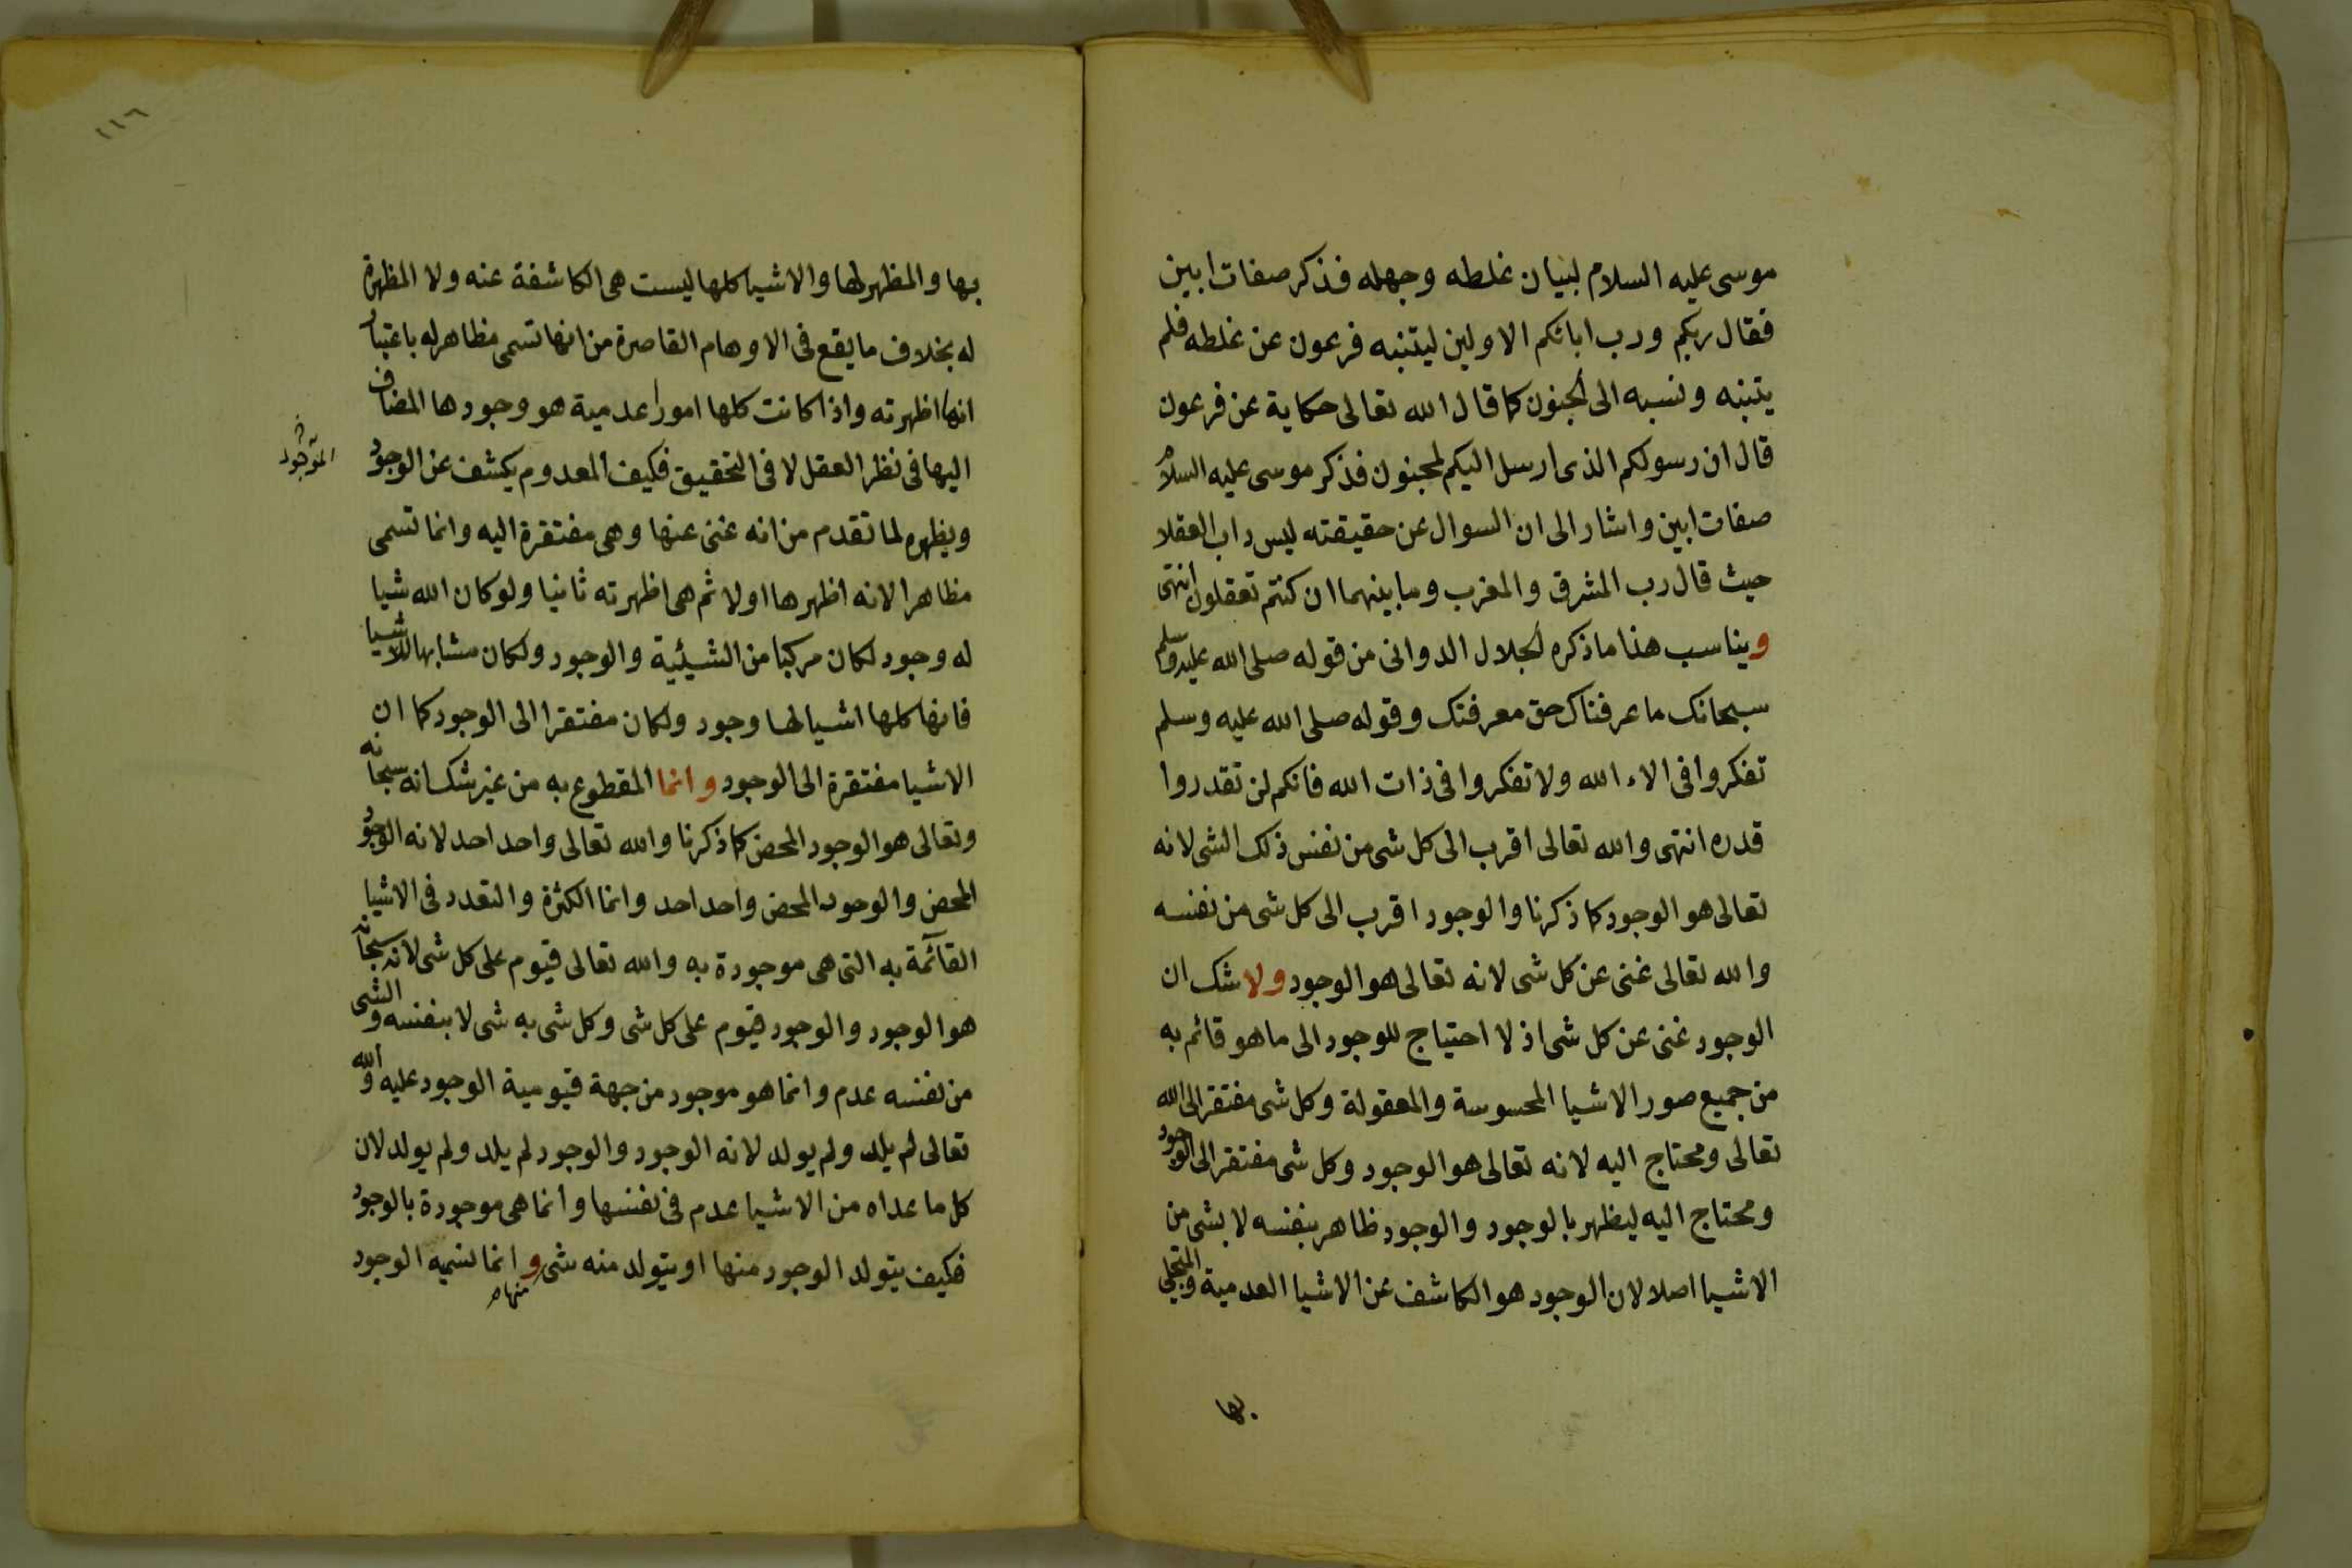 موسى عليه السلام لبيان غلطه وجهله فذكر صفات ابين
فقال ربكم ورب ابائكم الاولين ليتنبه فرعون عن غلطه فلم
يتنبه ونسبه الى الجنون كما قال الله تعالى حكاية عن فرعون
قال ان رسولكم الذى ارسل اليكم لمجنون فذكر موسى عليه السلام
صفات ابين واشار الى ان السوال عن حقيقته ليس داب العقلا
حيث قال رب المشرق والمغرب وما بينهما ان كنتم تعقلون انتهى
ويناسب هذا ما ذكره الجلال الدوانى من قوله صلى الله عليه وسلم
سبحانك ما عرفناك حق معرفتك وقوله صلى الله عليه وسلم
تفكروا فى الاء الله ولا تفكروا فى ذات الله فانكم لن تقدروا
قدره انتهى والله تعالى اقرب الى كل شى من نفس ذلك الشى لانه
تعالى هو الوجود كما ذكرنا والوجود اقرب الى كل شى من نفسه
والله تعالى غنى عن كل شى لانه تعالى هو الوجود ولا شك ان
الوجود غنى عن كل شى اذ لا احتياج للوجود الى ما هو قائم به
من جميع صور الاشيا المحسوسة والمعقولة وكل شى مفتقر الى الله
تعالى ومحتاج اليه لانه تعالى هو الوجود وكل شى مفتقر الى الوجود
ومحتاج اليه ليظهر بالوجود والوجود ظاهر بنفسه لا بشى من
الاشيا اصلا لان الوجود هو الكاشف عن الاشيا العدمية والمتجلى
بها
١١٦
بها والمظهر لها والاشيا كلها ليست هى الكاشفة عنه ولا المظهرة
له بخلاف ما يقع فى الاوهام القاصرة من انها تسمى مظاهر له باعتبار
انها اظهرته واذا كانت كلها امورا عدمية هو وجودها المضاف
اليها فى نظر العقل لا فى التحقيق فكيف المعدوم يكشف عن الوجود
الموجود
ويظهره لما تقدم من انه غنى عنها وهى مفتقرة اليه وانما تسمى
مظاهرا لانه اظهرها اولا ثم هى اظهرته ثانيا ولو كان الله شيا
له وجود لكان مركبا من الشيئية والوجود ولكان مشابها للاشيا
فانها كلها اشيا لها وجود ولكان مفتقرا الى الوجود كما ان
الاشيا مفتقرة الى الوجود وانما المقطوع به من غير شك انه سبحانه
وتعالى هو الوجود المحض كما ذكرنا والله تعالى واحد احد لانه الوجود
المحض والوجود المحض واحد احد وانما الكثرة والتعدد فى الاشيا
القآئمة به التى هى موجودة به والله تعالى قيوم على كل شى لانه سبحانه
هو الوجود والوجود قيوم على كل شى وكل شى به شى لا بنفسه والشى
من نفسه عدم وانما هو موجود من جهة قيومية الوجود عليه والله
تعالى لم يلد ولم يولد لانه الوجود والوجود لم يلد ولم يولد لان
كل ما عداه من الاشيا عدم فى نفسها وانما هى موجودة بالوجود
فكيف يتولد الوجود منها او يتولد منه شى وانما نسبة الوجود
منها